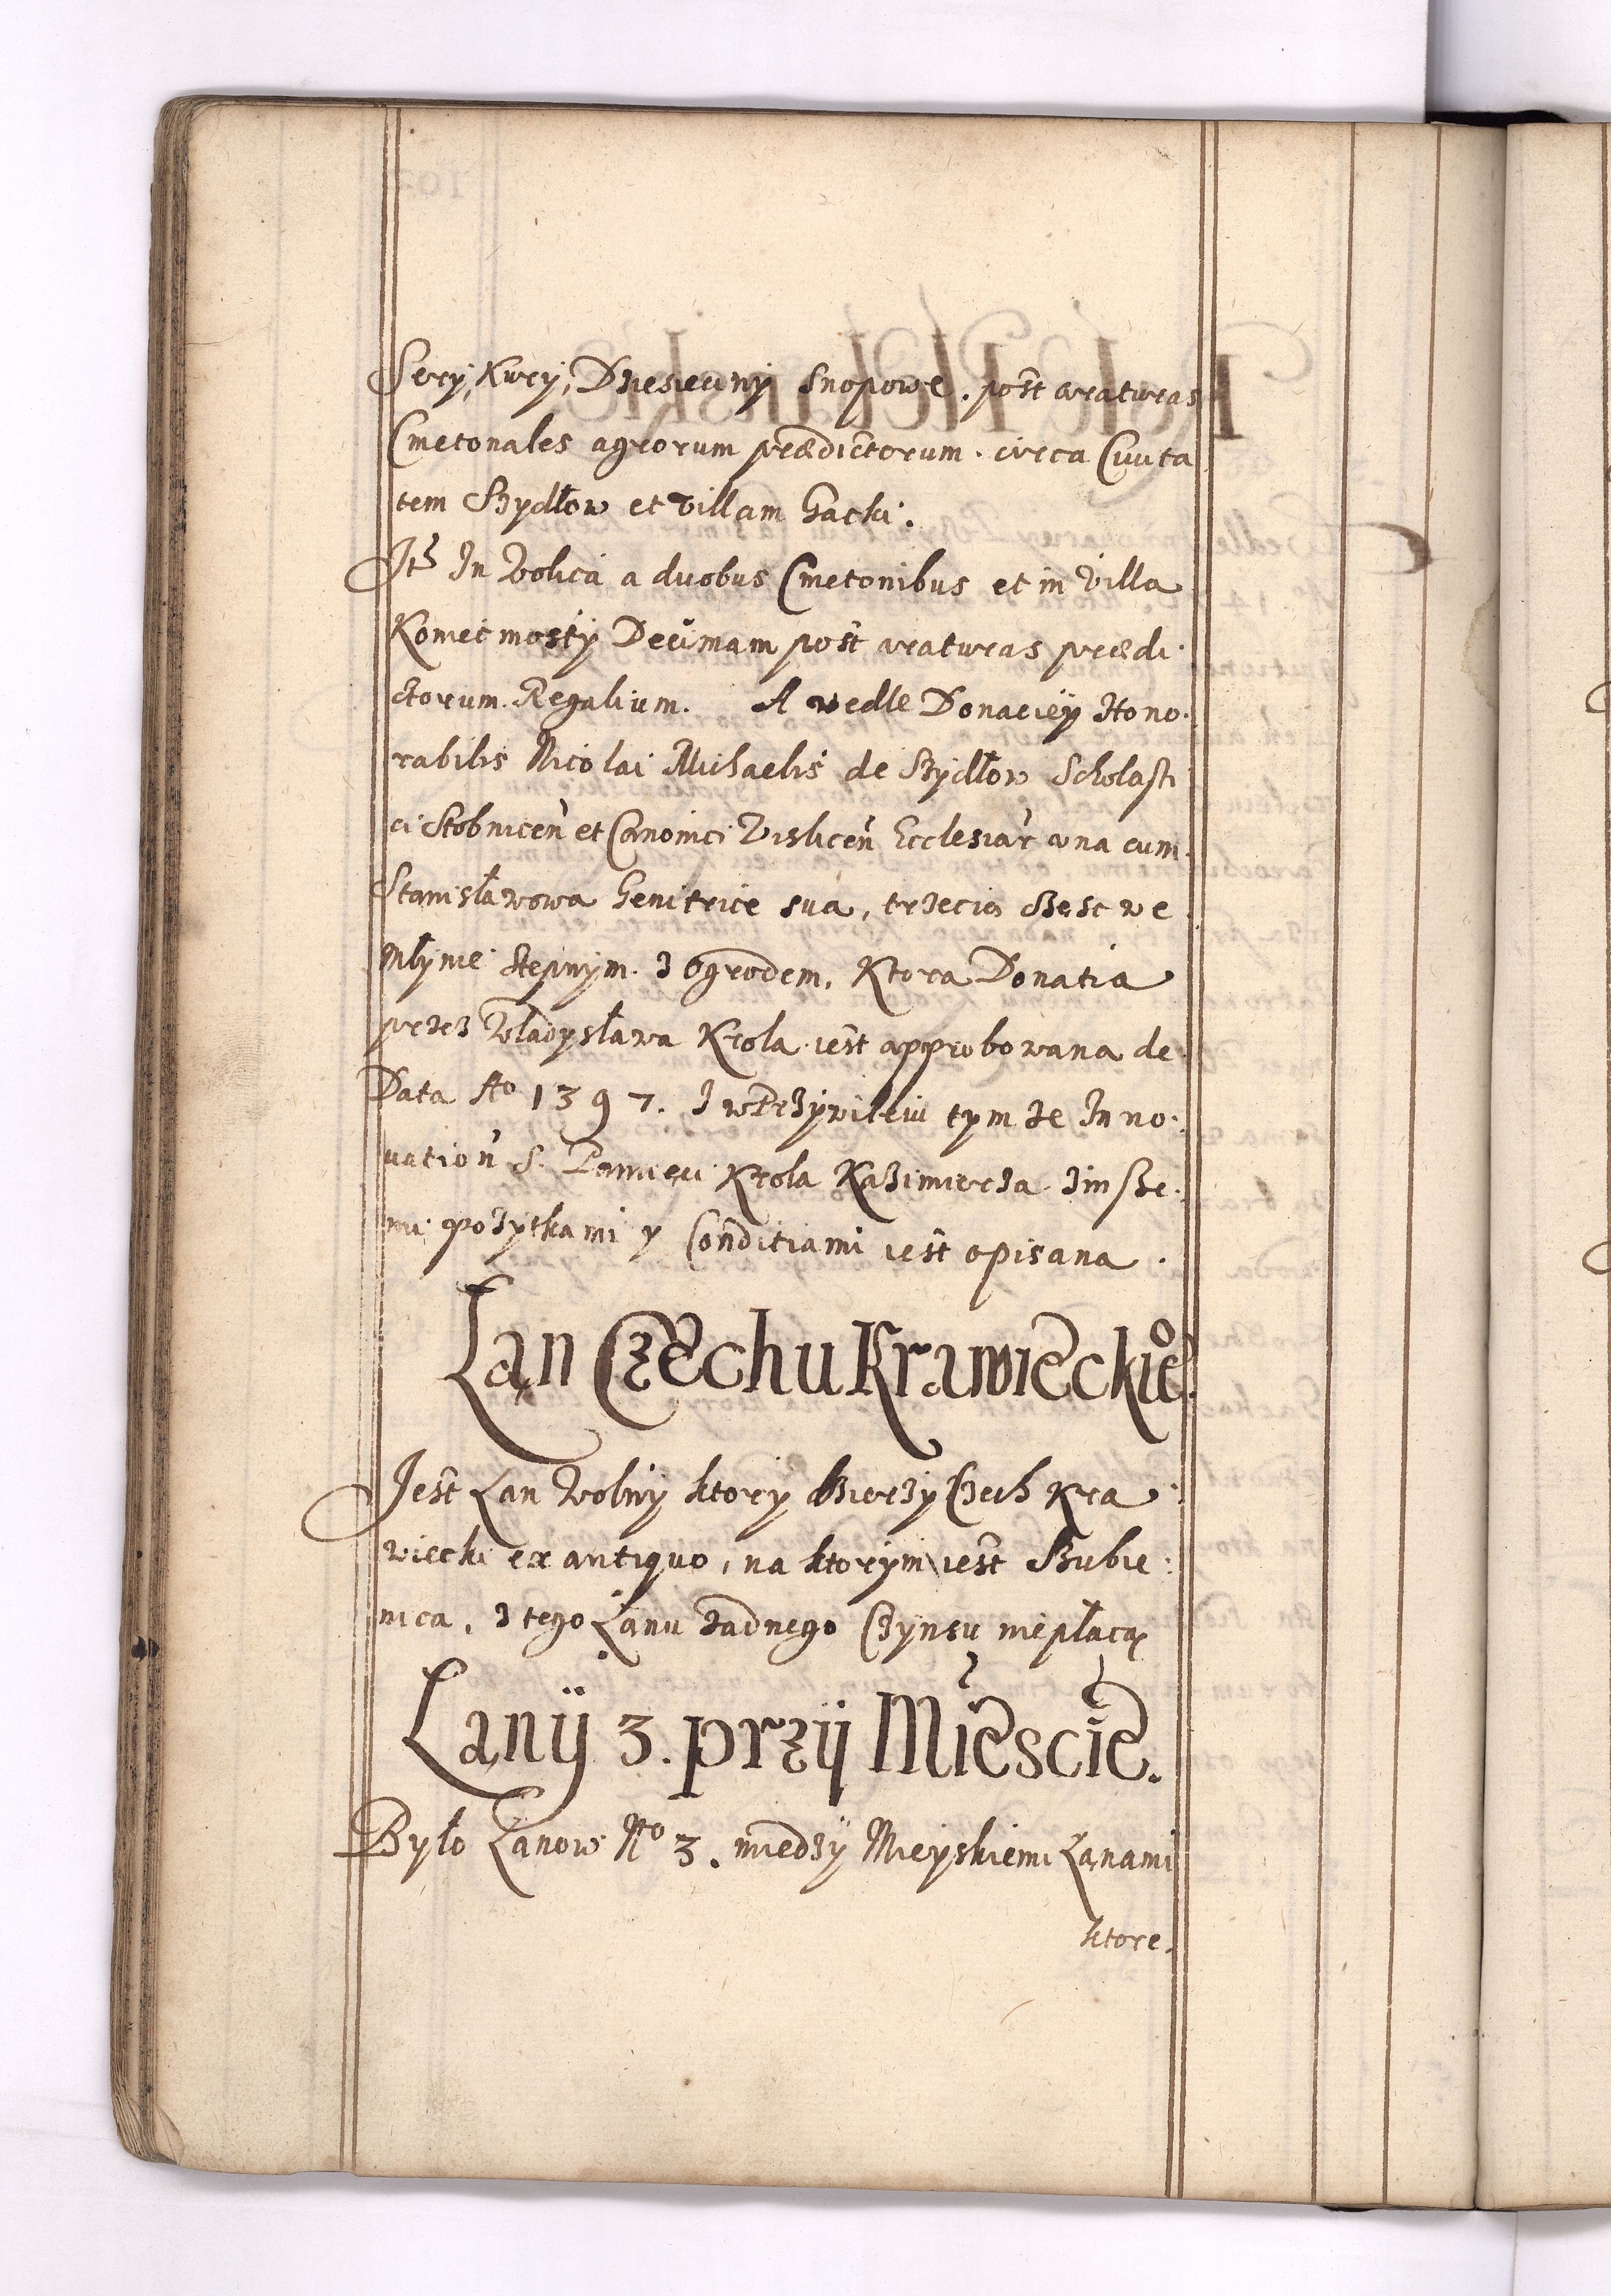 Sery, Kury, Dziesieciny Snopowe. post araturas
Cmetonales agrorum prædictorum. circa Ciuita
tem Szydłow et villam Gacki.
Jtz In Wolica a duobus Cmetonibus et in Villa
Koniecmosty Decimam post araturas prædi
ctorum. Regalium. A wedle Donacieÿ Hono.
rabilis Nicolai Michaelis de Szydłow Scholasti
ci Stobnicen et Canonici Vislicen Ecclesiar una cum
Stanisławowa Genitrice sua, trzecia Część we
Młynie stepnym. z ogrodem, Ktora Donatia
przez Władysława Krola iest approbowana de
Data Ao 1397. J w Przywileiu tym ze Inno.
uation S. Pamieci Krola Kazimierza. z insze.
mi pozytkami y Conditiami iest opisana.
Lan Czechu Krawieckie°.
Jest Lan Wolny ktory dzierzy Czech Kra
wiecki ex antiquo, na ktorym iest Szubie:
nica, z tego Łanu zadnego Czynsu niepłacą
Lanÿ 3. przÿ Miescie.
Było Łanow No 3. miedzÿ Mieyskiemi Łanami
ktore.